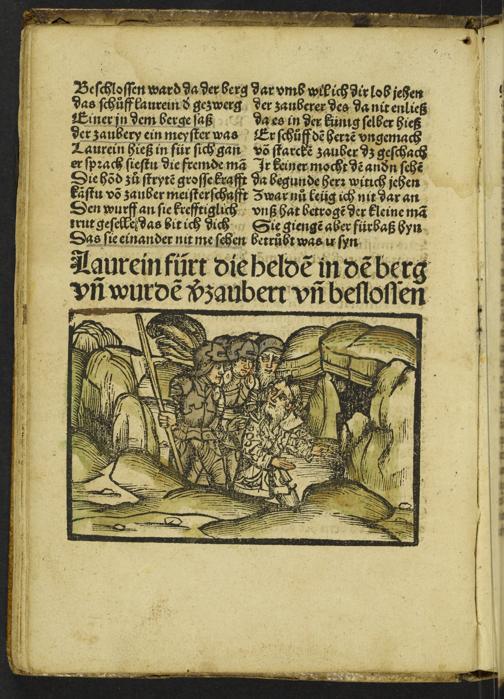 Beschlossen ward da der berg
das schůff laurein d̕ gezwerg
Einer jn dem berge saß
der zaubery ein meyster was
Laurein hieß in für sich gan
er sprach siestu die fremde mā
Die hōd zů stryte grosse krafft
kāstu vō zauber meisterschafft
Den wurff an sie krefftiglich
trut geselle das bit ich dich
Das sie einander nit me sehen
dar vmb wil ich dir lob jehen
der zauberer des da nit enließ
da es in der künig selber hieß
Er schůff dē herrē vngemach
vō starckē zauber dz geschach
Ir keiner mocht dē andn sehē
da begunde herr witich jehen
Zwar nů leüg ich nit dar an
vnß hat betrogē der kleine mā
Sie giengē aber fürbaß hyn
betrůbt was ir syn
Laurein fürt die heldē in dē berg
vn̄ wurdē v̕zaubert vn̄ beslossen